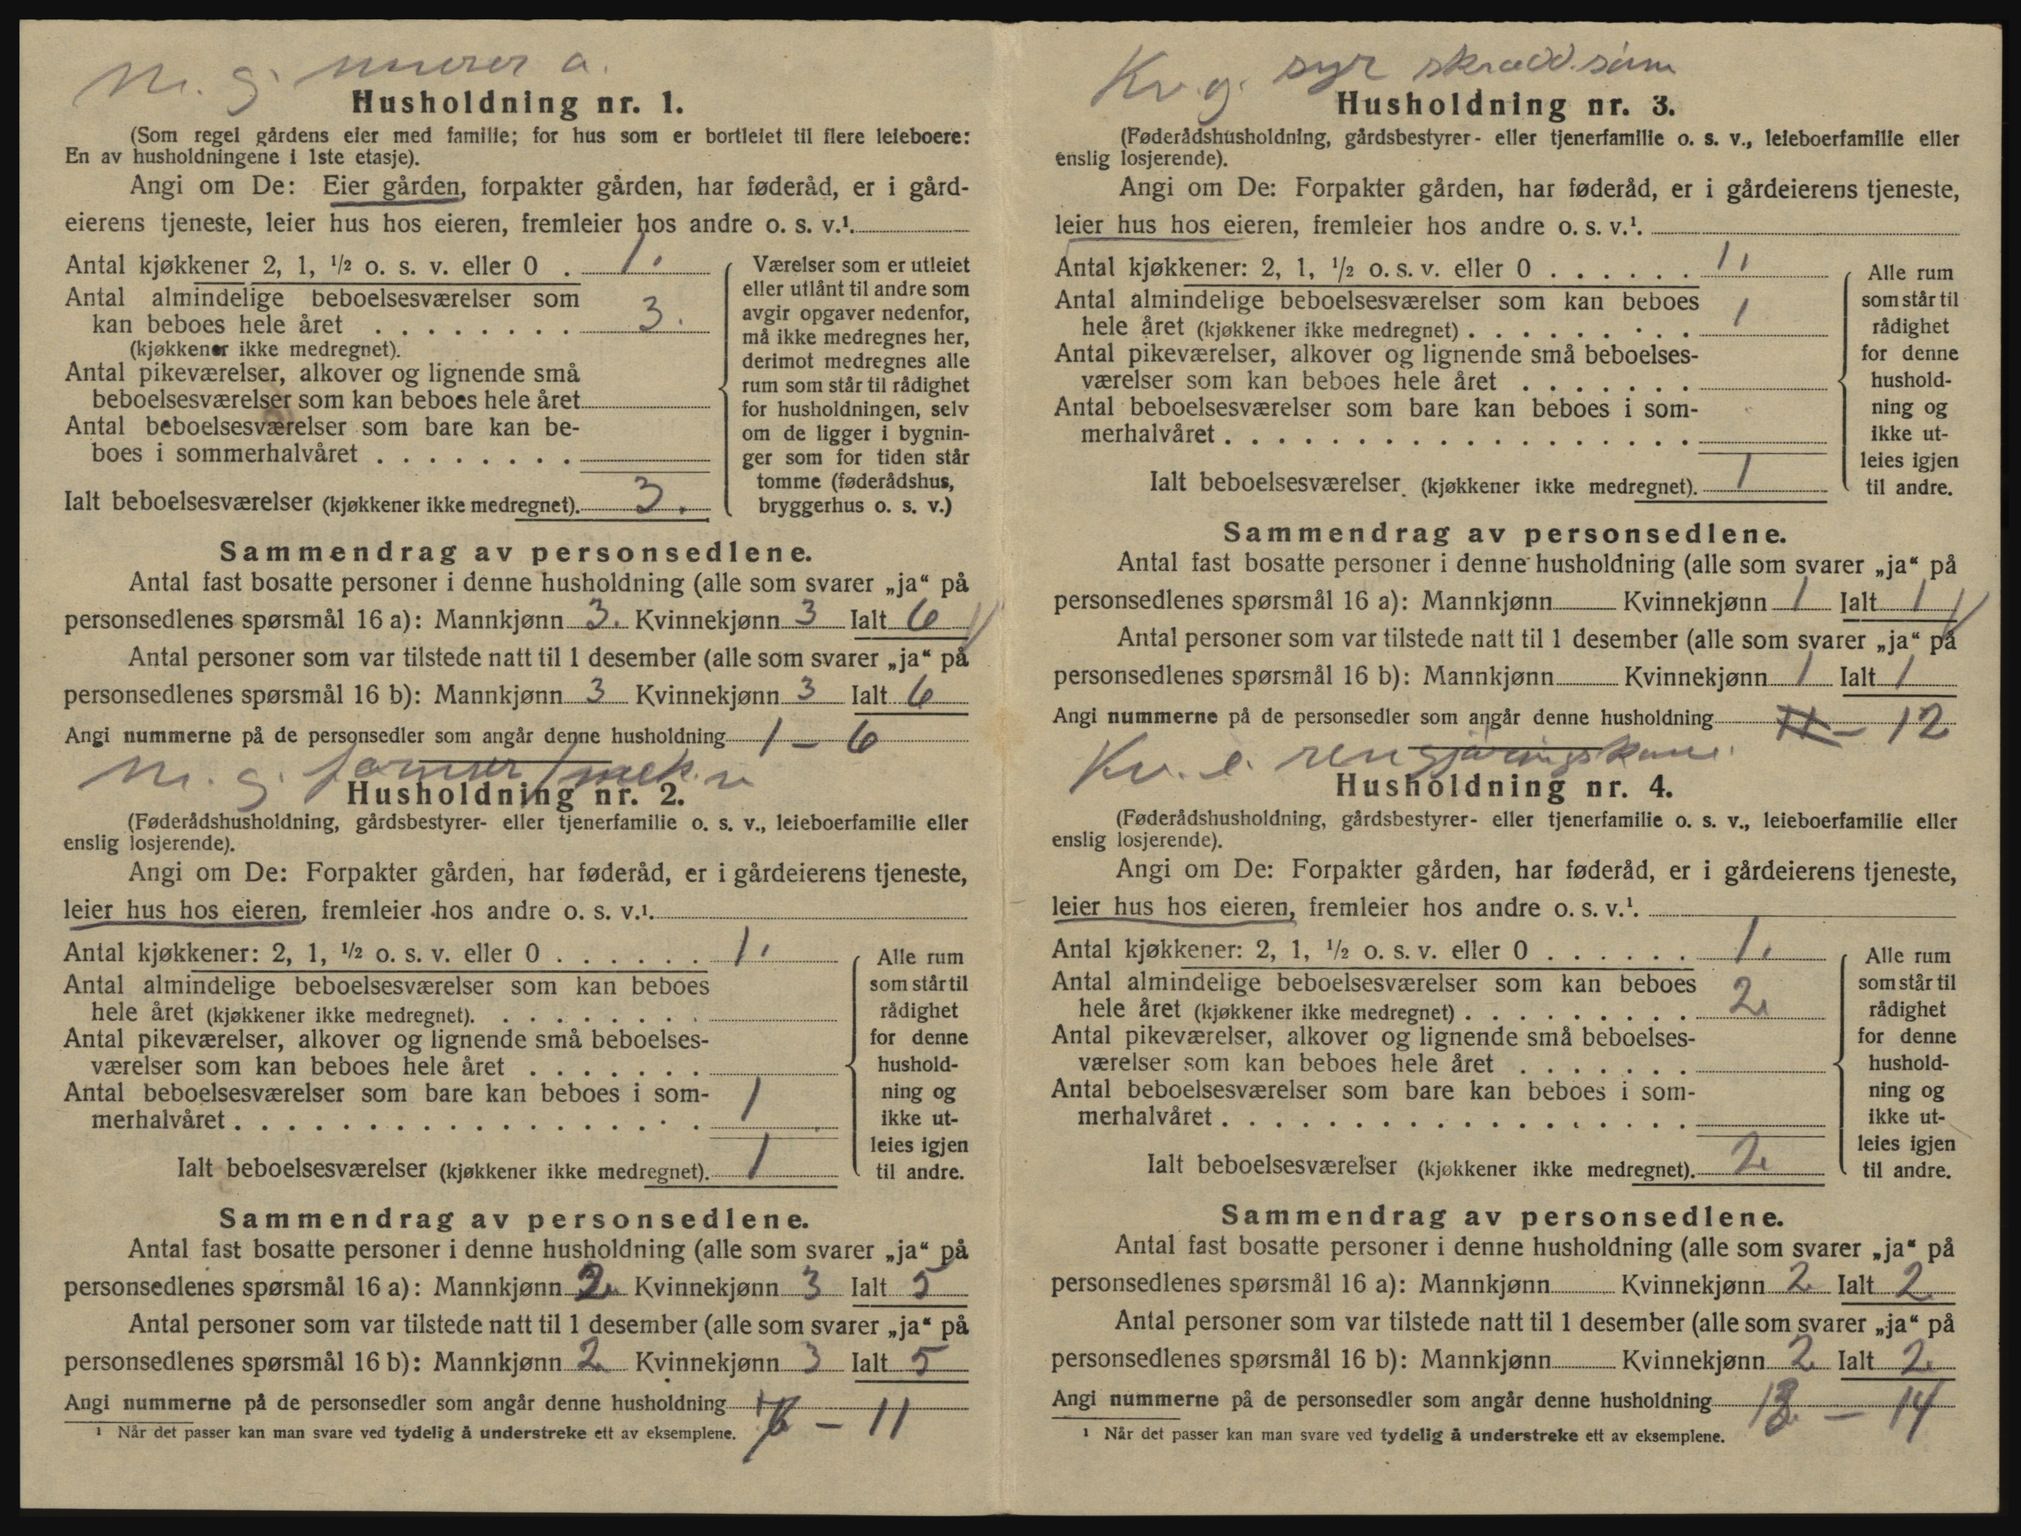 M. g. murer a.
Husholdning nr. 1.
(Som regel gårdens eier med familie; for hus som er bortleiet til flere leieboere:
En av husholdningene i 1ste etasje).
Angi om De: Eier gården, forpakter gården, har føderåd, er i gård-
eierens tjeneste, leier hus hos eieren, fremleier hos andre o. s. v.¹.
Antal kjøkkener 2, 1, ½ o. s. v. eller 0 . 1.
Antal almindelige beboelsesværelser som
kan beboes hele året . . . . . . . . 3.
(kjøkkener ikke medregnet).
Antal pikeværelser, alkover og lignende små
beboelsesværelser som kan beboes hele året
Antal beboelsesværelser som bare kan be-
boes i sommerhalvåret . . . . . . . .
Ialt beboelsesværelser (kjøkkener ikke medregnet). 3.
Værelser som er utleiet
eller utlånt til andre som
avgir opgaver nedenfor,
må ikke medregnes her,
derimot medregnes alle
rum som står til rådighet
for husholdningen, selv
om de ligger i bygnin-
ger som for tiden står
tomme (føderådshus,
bryggerhus o. s. v.)
Sammendrag av personsedlene.
Antal fast bosatte personer i denne husholdning (alle som svarer „ja“ på
personsedlenes spørsmål 16 a): Mannkjønn 3. Kvinnekjønn 3 Ialt 6
Antal personer som var tilstede natt til 1 desember (alle som svarer „ja“ på
personsedlenes spørsmål 16 b): Mannkjønn 3 Kvinnekjønn 3 Ialt 6
Angi nummerne på de personsedler som angår denne husholdning 1 – 6
M. g. former / mek. v
Husholdning nr. 2.
(Føderådshusholdning, gårdsbestyrer- eller tjenerfamilie o. s. v., leieboerfamilie eller
enslig losjerende).
Angi om De: Forpakter gården, har føderåd, er i gårdeierens tjeneste,
leier hus hos eieren, fremleier hos andre o. s. v.¹.
Antal kjøkkener: 2, 1, ½ o. s. v. eller 0 . . . . . . 1.
Antal almindelige beboelsesværelser som kan beboes
hele året (kjøkkener ikke medregnet). . . . . . . . .
Antal pikeværelser, alkover og lignende små beboelses-
værelser som kan beboes hele året . . . . . . .
Antal beboelsesværelser som bare kan beboes i som- 1
merhalvåret . . . . . . . . . . . . . . . . . .
Ialt beboelsesværelser (kjøkkener ikke medregnet). 1
Alle rum
som står til
rådighet
for denne
hushold-
ning og
ikke ut-
leies igjen
til andre.
Sammendrag av personsedlene.
Antal fast bosatte personer i denne husholdning (alle som svarer „ja“ på
personsedlenes spørsmål 16 a): Mannkjønn 2 Kvinnekjønn 3 Ialt 5
Antal personer som var tilstede natt til 1 desember (alle som svarer „ja“ på
personsedlenes spørsmål 16 b): Mannkjønn 2 Kvinnekjønn 3 Ialt 5
Angi nummerne på de personsedler som angår denne husholdning – 11
¹ Når det passer kan man svare ved tydelig å understreke ett av eksemplene.
Kv. g. syr skrædd.søm
Husholdning nr. 3.
(Føderådshusholdning, gårdsbestyrer- eller tjenerfamilie o. s. v., leieboerfamilie eller
enslig losjerende).
Angi om De: Forpakter gården, har føderåd, er i gårdeierens tjeneste,
leier hus hos eieren, fremleier hos andre o. s. v.¹.
Antal kjøkkener: 2, 1, ½ o. s. v. eller 0 . . . . . . 1,
Antal almindelige beboelsesværelser som kan beboes
hele året (kjøkkener ikke medregnet) . . . . . . . . . 1
Antal pikeværelser, alkover og lignende små beboelses-
værelser som kan beboes hele året . . . . . . .
Antal beboelsesværelser som bare kan beboes i som-
merhalvåret . . . . . . . . . . . . . . . . . .
Ialt beboelsesværelser (kjøkkener ikke medregnet). 1
Alle rum
som står til
rådighet
for denne
hushold-
ning og
ikke ut-
leies igjen
til andre.
Sammendrag av personsedlene.
Antal fast bosatte personer i denne husholdning (alle som svarer „ja“ på
personsedlenes spørsmål 16 a): Mannkjønn Kvinnekjønn 1 Ialt 1
Antal personer som var tilstede natt til 1 desember (alle som svarer „ja“ på
personsedlenes spørsmål 16 b): Mannkjønn Kvinnekjønn 1 Ialt 1
Angi nummerne på de personsedler som angår denne husholdning 11 – 12
Kv. e. rengjøringskone.
Husholdning nr. 4.
(Føderådshusholdning, gårdsbestyrer- eller tjenerfamilie o. s. v., leieboerfamilie eller
enslig losjerende).
Angi om De: Forpakter gården, har føderåd, er i gårdeierens tjeneste,
leier hus hos eieren, fremleier hos andre o. s. v.¹.
Antal kjøkkener: 2, 1, ½ o. s. v. eller 0 . . . . . . 1.
Antal almindelige beboelsesværelser som kan beboes
hele året (kjøkkener ikke medregnet) . . . . . . . . . 2
Antal pikeværelser, alkover og lignende små beboelses-
værelser som kan beboes hele året . . . . . . .
Antal beboelsesværelser som bare kan beboes i som-
merhalvåret . . . . . . . . . . . . . . . . . .
Ialt beboelsesværelser (kjøkkener ikke medregnet). 2
Alle rum
som står til
rådighet
for denne
hushold-
ning og
ikke ut-
leies igjen
til andre.
Sammendrag av personsedlene.
Antal fast bosatte personer i denne husholdning (alle som svarer „ja“ på
personsedlenes spørsmål 16 a): Mannkjønn Kvinnekjønn 2 Ialt 2
Antal personer som var tilstede natt til 1 desember (alle som svarer „ja“ på
personsedlenes spørsmål 16 b): Mannkjønn Kvinnekjønn 2 Ialt 2
Angi nummerne på de personsedler som angår denne husholdning 13 – 14
¹ Når det passer kan man svare ved tydelig å understreke ett av eksemplene.